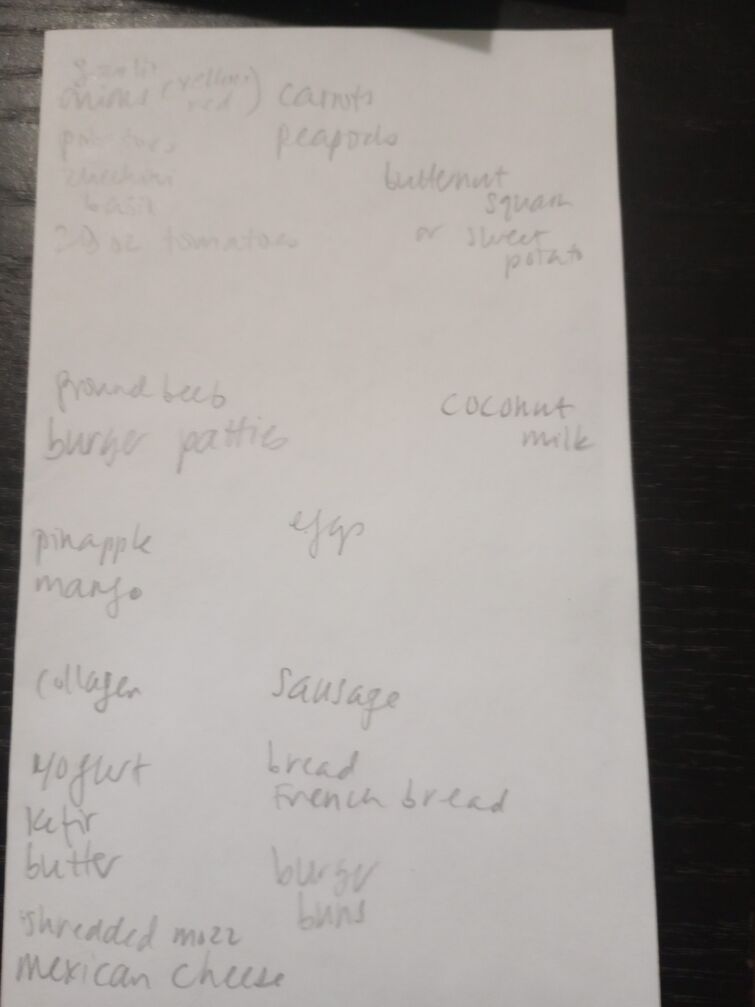 garlic
onions (yellow red) carrots
potatoes peapods
zucchini butternut
basil squash
28 oz tomatoes or sweet
potato
ground beef coconut
burger patties milk
pinapple eggs
mango
collagen sausage
yogurt bread
French bread
kefir
butter burger
buns
shredded mozz
mexican cheese